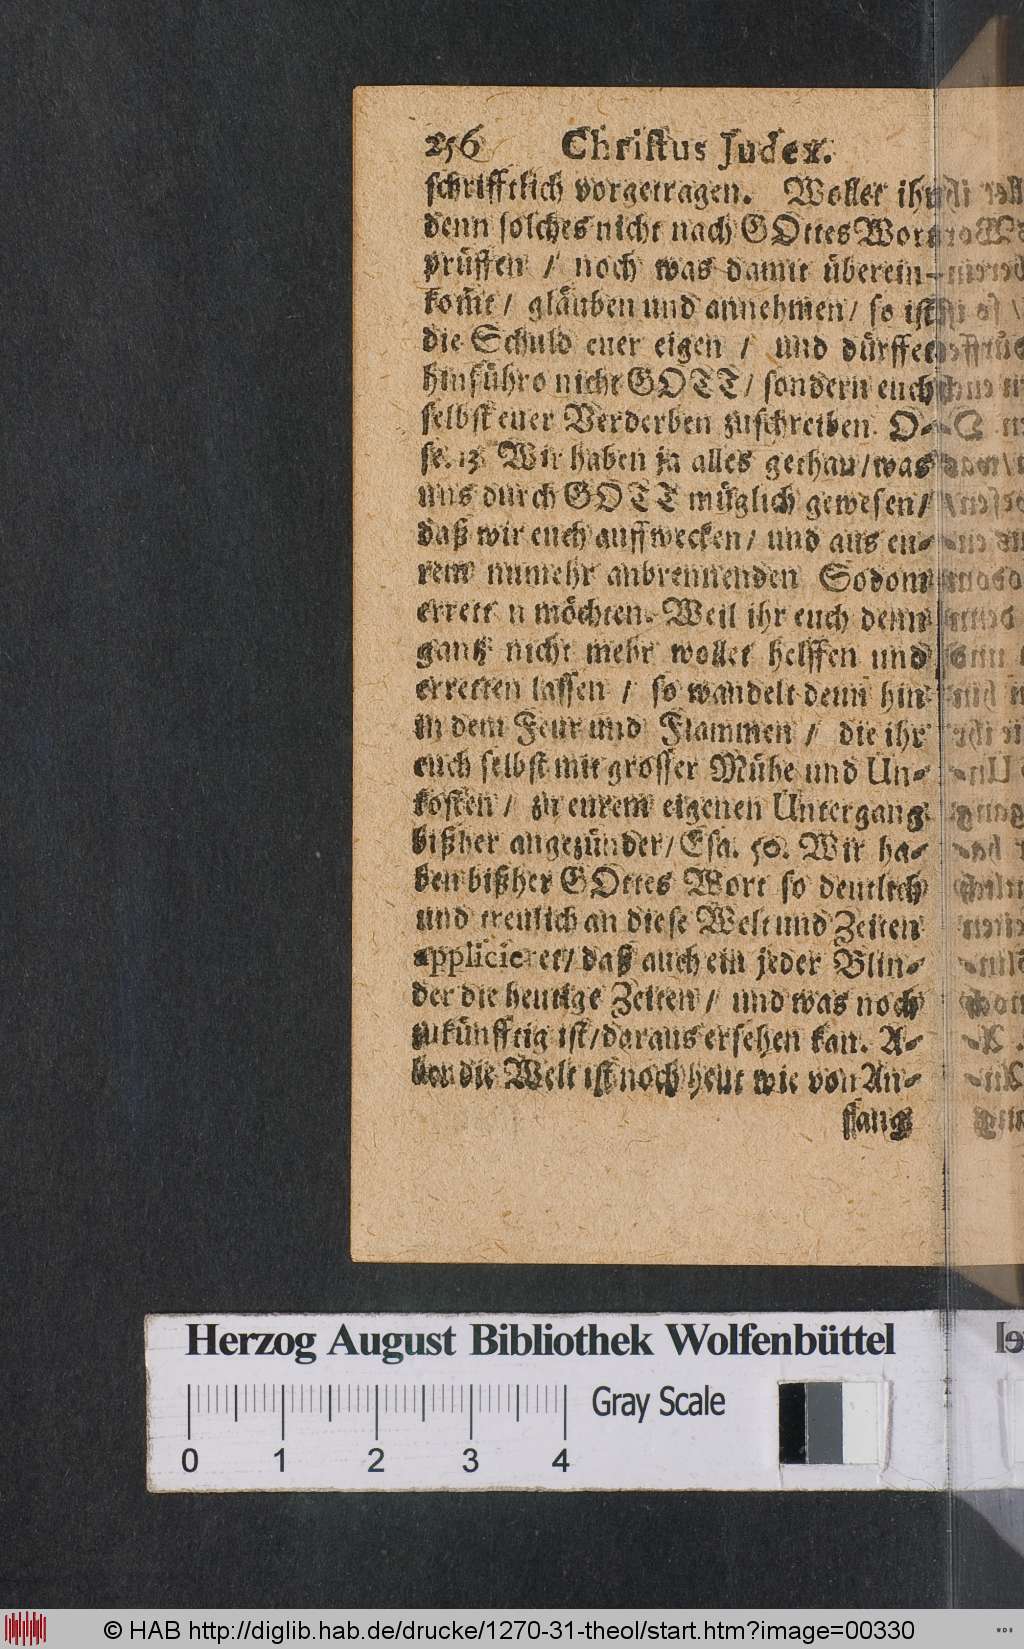 256 Christus Judex.
schrifftlich vorgetragen. Wollet ihr
denn solches nicht nach GOttes Wort
prüffen / noch was damit überein-
kom̃t / gläuben und annehmen / so ist
die Schuld euer eigen / und dürffet
hinführo nicht GOTT / sondern euch
selbst euer Verderben zuschreiben. O-
se. 13. Wir haben ja alles gethan / was
uns durch GOTT müglich gewesen /
daß wir euch auffwecken / und aus eu-
rem nunmehr anbrennenden Sodom
errett n möchten. Weil ihr euch denn
gantz nicht mehr wollet helffen und
erretten lassen / so wandelt denn hin
in dem Feur und Flammen / die ihr
euch selbst mit grosser Mühe und Un-
kosten / zu eurem eigenen Untergang
bißher angezündet / Esa. 50. Wir ha-
ben bißher GOttes Wort so deutlich
und treulich an diese Welt und Zeiten
applicieret / daß auch ein jeder Blin-
der die heutige Zeiten / und was noch
zukünfftig ist / daraus ersehen kan. A-
ber die Welt ist noch heut wie von An-
fang
Herzog August Bibliothek Wolfenbüttel
Gray Scale
0 1 2 3 4
© HAB http://diglib.hab.de/drucke/1270-31-theol/start.htm?image=00330